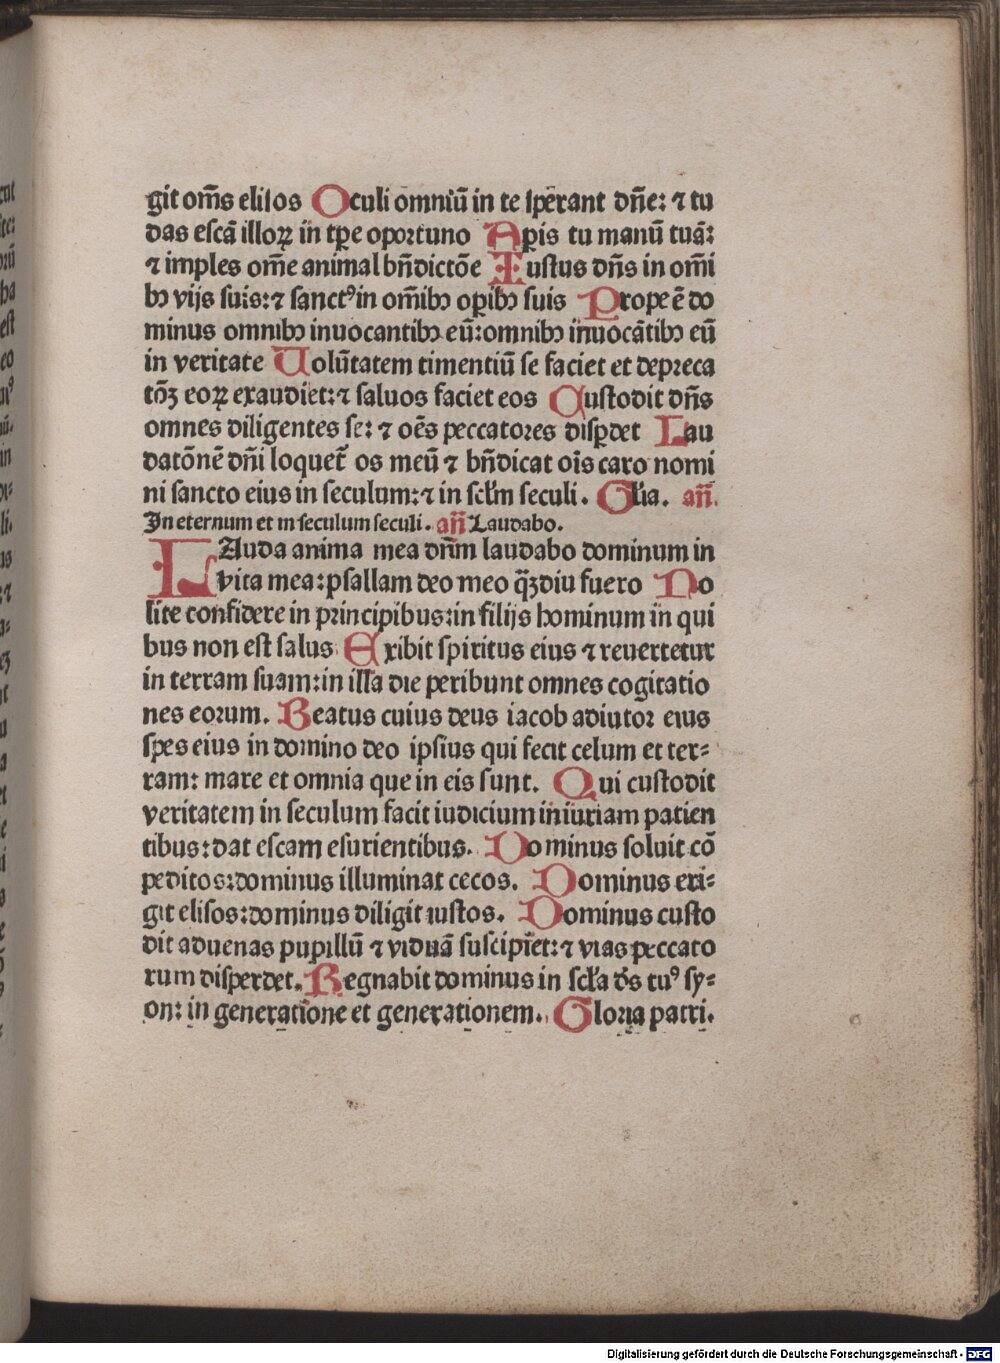 git om̄s elisos Oculi omniū in te sꝑant dn̄e: ⁊ tu
das escā illoꝝ in tꝑe oportuno Aꝑis tu manū tuā:
⁊ imples om̄e animal bn̄dictōe Iustus dn̄s in om̄i
bꝫ vijs suis: ⁊ sanctꝰ in om̄ibꝫ oꝑibꝫ suis Prope ē do
minus omnibꝫ inuocantibꝫ eū: omnibꝫ inuocātibꝫ eū
in veritate Volūtatem timentiū se faciet et depreca
tōꝫ eoꝝ exaudiet: ⁊ saluos faciet eos Custodit dn̄s
omnes diligentes se: ⁊ oēs peccatores disꝑdet Lau
datōnē dn̄i loquet᷑ os meū ⁊ bn̄dicat oīs caro nomi
ni sancto eius in seculum: ⁊ in scl̄m seculi. Gl̄ia. an̄
In eternum et in seculum seculi. an̄ Laudabo.
LAuda anima mea dn̄m laudabo dominum in
vita mea: psallam deo meo q̄ꝫdiu fuero No
lite confidere in principibus: in filijs hominum in qui
bus non est salus Exibit spiritus eius ⁊ reuertetur
in terram suam: in illa die peribunt omnes cogitatio
nes eorum. Beatus cuius deus iacob adiutor eius
spes eius in domino deo ipsius qui fecit celum et ter⸗
ram: mare et omnia que in eis sunt. Qui custodit
veritatem in seculum facit iudicium iniuriam patien
tibus: dat escam esurientibus. Dominus soluit cō
peditos: dominus illuminat cecos. Dominus eri⸗
git elisos: dominus diligit iustos. Dominus custo
dit aduenas pupillū ⁊ viduā suscipiet: ⁊ vias peccato
rum disperdet. Regnabit dominus in scl̄a ds̄ tuꝰ sy⸗
on: in generatione et generationem. Gloria patri.
Digitalisierung gefördert durch die Deutsche Forschungsgemeinschaft - DFG